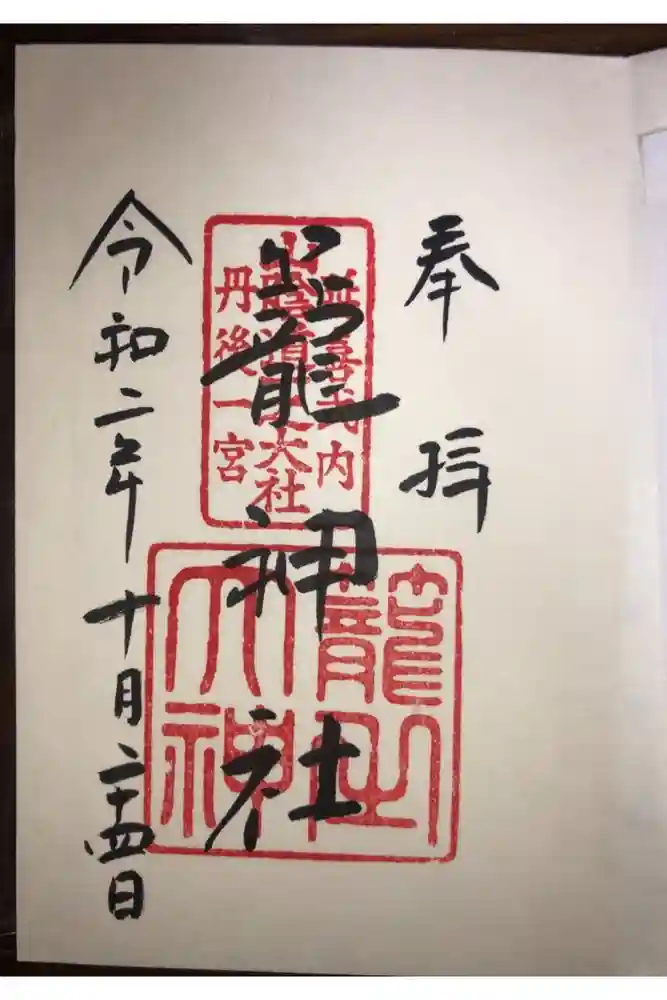 奉拝
延喜式内
山陰道一大社
丹後一宮
籠神社
籠之
大神
令和二年十月二十四日